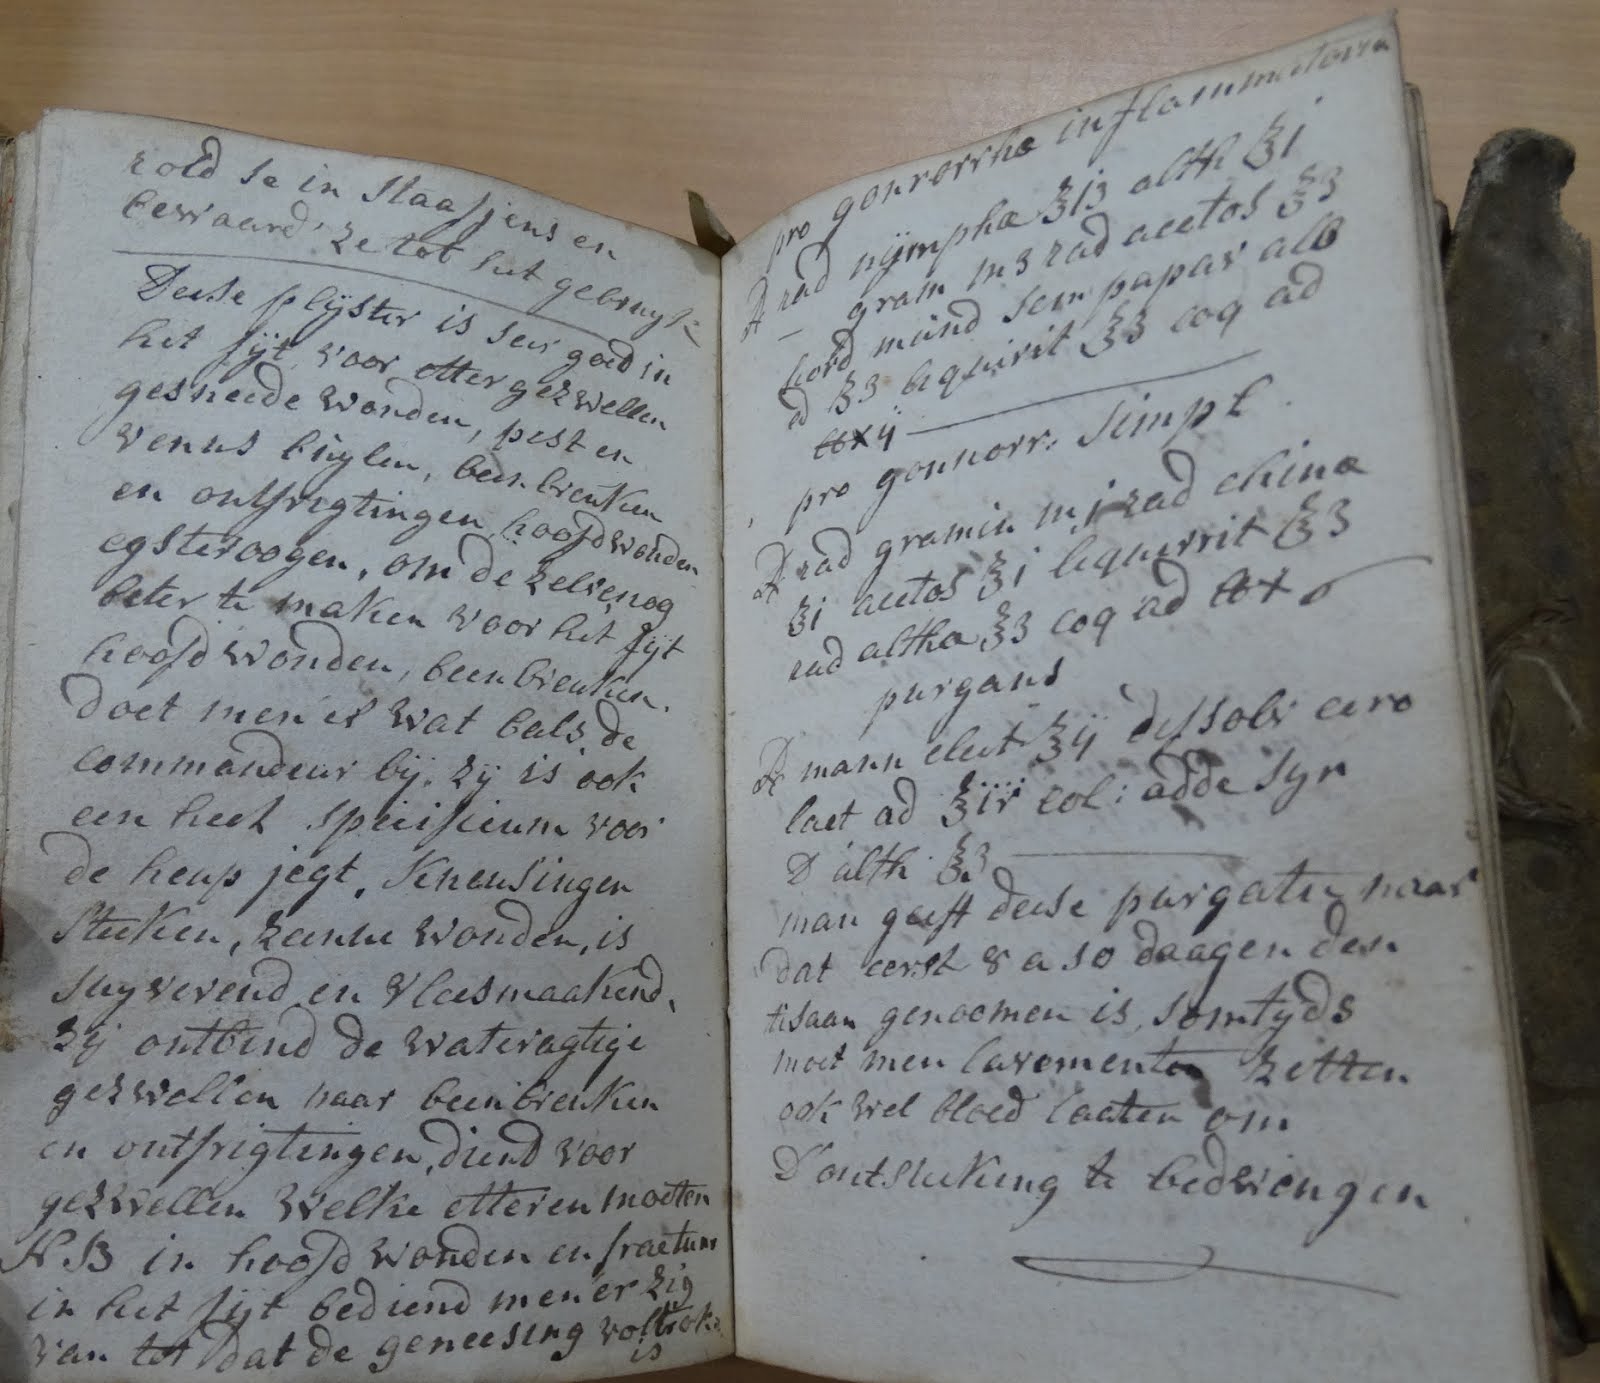 rold se in Staafjens en
bewaard ze tot het gebruyk
Deese plyster is seer goed in
het fyt, voor etter gezwellen
gesneede wonden, pest en
venus buylen, been breuken
en ontfrigtingen hoofd wonden
egsteroogen, om de zelve nog
beter te maken voor het fyt
hoofd wonden, been breuken,
doet men er wat bals. de
commandeur bij. zij is ook
een heel specificum voor
de heup jegt, Kneusingen
Steeken, zeenue wonden, is
suyverend en vleesmaakend,
zij ontbind de wateragtige
gezwellen naar beenbreuken
en ontfrigtingen, diend voor
gezwellen welke etteren moeten
N.B in hoofd wonden en fractuur
in het fijt bediend men er zig
van tot dat de geneesing voltrok
is
pro gonrorrhæ inflammatoria
℞ rad nijmphæ ℥iβ alth ℥i
– gram m3 rad acetos ℥β
hord mund sem papav alb
a ʒβ liquirit ℥β coq ad
℔xij
pro gonnorr: Simpl.
℞ rad gramin m.j rad chinæ
ʒi acetos ℥i liquirrit ℥β
rad althæ ℥β coq ad ℔x
purgans
℞ mann elect ℥ij dissolv cero
lact ad ℥iv col: adde Syr
D alth ℥β
man geeft deese purgatie naar
dat eerst 8 a 10 daagen den
tisaan genoomen is, somtyds
moet men lavementen zetten
ook wel bloed laaten om
D'ontsteeking te bedwiengen